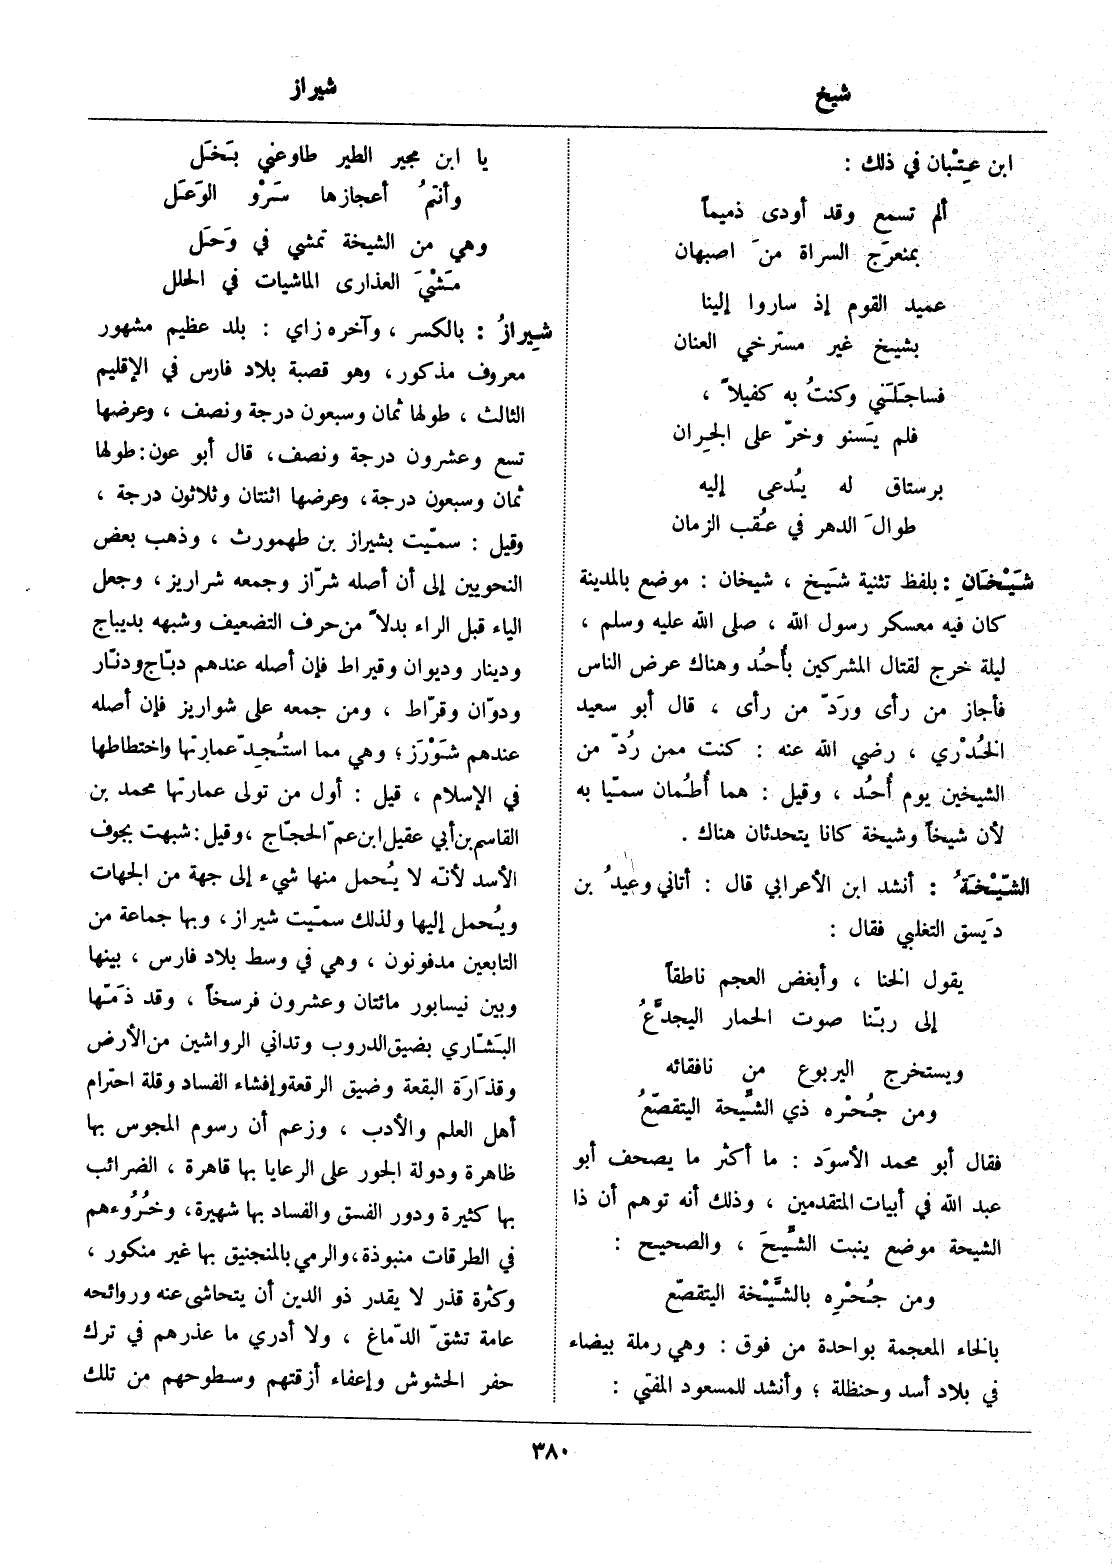 شيخ
شيراز
ابن عِتْبان في ذلك :
ألم تسمع وقد أودى ذميماً
بمنعرَج السراة منَ اصبهان
عميد القوم إذ ساروا إلينا
بشيخ غير مسترخي العنان
فساجَلَني وكنتُ به كفيلاً ،
فلم يَسنو وخرّ على الجِران
برستاق له يُدعى إليه
طوالَ الدهر في عُقب الزمان
شَيْخَانِ : بلفظ تثنية شَيخ ، شيخان : موضع بالمدينة
كان فيه معسكر رسول الله ، صلى الله عليه وسلم ،
ليلة خرج لقتال المشركين بأُحُد وهناك عرض الناس
فأجاز من رأى ورَدّ من رأى ، قال أبو سعيد
الخُدْري ، رضي الله عنه : كنت ممن رُدّ من
الشيخين يوم أُحُد ، وقيل : هما أُطُمان سمّيا به
لأن شيخاً وشيخة كانا يتحدثان هناك .
الشّيْخَةُ : أنشد ابن الأعرابي قال : أتاني وعيدُ بن
دَيسق التغلبي فقال :
يقول الخنا ، وأبغض العجم ناطقاً
إلى ربّنا صوت الحمار اليجدَّعُ
ويستخرج اليربوع من نافقائه
ومن جُحْره ذي الشِّيحة اليتقصّعُ
فقال أبو محمد الأسوَد : ما أكثر ما يصحف أبو
عبد الله في أبيات المتقدمين ، وذلك أنه توهم أن ذا
الشيحة موضع ينبت الشِّيحَ ، والصحيح :
ومن جُحْرِه بالشَّيْخة اليتقصّع
بالخاء المعجمة بواحدة من فوق : وهي رملة بيضاء
في بلاد أسد وحنظلة ؛ وأنشد للمسعود المفتي :
يا ابن مجير الطير طاوعني بَخَل
وأنتمُ أعجازها سَرْو الوَعَل
وهي من الشيخة تمشي في وَحَل
مَشْيَ العذارى الماشيات في الحلل
شِيرازُ : بالكسر ، وآخره زاي : بلد عظيم مشهور
معروف مذكور ، وهو قصبة بلاد فارس في الإقليم
الثالث ، طولها ثمان وسبعون درجة ونصف ، وعرضها
تسع وعشرون درجة ونصف ، قال أبو عون : طولها
ثمان وسبعون درجة ، وعرضها اثنتان وثلاثون درجة ،
وقيل : سمّيت بشيراز بن طهمورث ، وذهب بعض
النحويين إلى أن أصله شرّاز وجمعه شراريز ، وجعل
الياء قبل الراء بدلاً من حرف التضعيف وشبهه بديباج
ودينار وديوان وقيراط فإن أصله عندهم دبّاج ودنّار
ودوّان وقرّاط ، ومن جمعه على شواريز فإن أصله
عندهم شَوْرَز ؛ وهي مما استُجِدّ عمارتها واختطاطها
في الإسلام ، قيل : أول من تولى عمارتها محمد بن
القاسم بن أبي عقيل ابن عمّ الحجّاج ، وقيل : شبهت بجوف
الأسد لأنّه لا يُحمل منها شيء إلى جهة من الجهات
ويُحمل إليها ولذلك سمّيت شيراز ، وبها جماعة من
التابعين مدفونون ، وهي في وسط بلاد فارس ، بينها
وبين نيسابور مائتان وعشرون فرسخاً ، وقد ذَمّها
البَشّاري بضيق الدروب وتداني الرواشين من الأرض
وقذارَة البقعة وضيق الرقعة وإفشاء الفساد وقلة احترام
أهل العلم والأدب ، وزعم أن رسوم المجوس بها
ظاهرة ودولة الجور على الرعايا بها قاهرة ، الضرائب
بها كثيرة ودور الفسق والفساد بها شهيرة ، وخُرُوءهم
في الطرقات منبوذة ، والرمي بالمنجنيق بها غير منكور ،
وكثرة قذر لا يقدر ذو الدين أن يتحاشى عنه وروائحه
عامة تشقّ الدّماغ ، ولا أدري ما عذرهم في ترك
حفر الحشوش وإعفاء أزقتهم وسطوحهم من تلك
٣٨٠